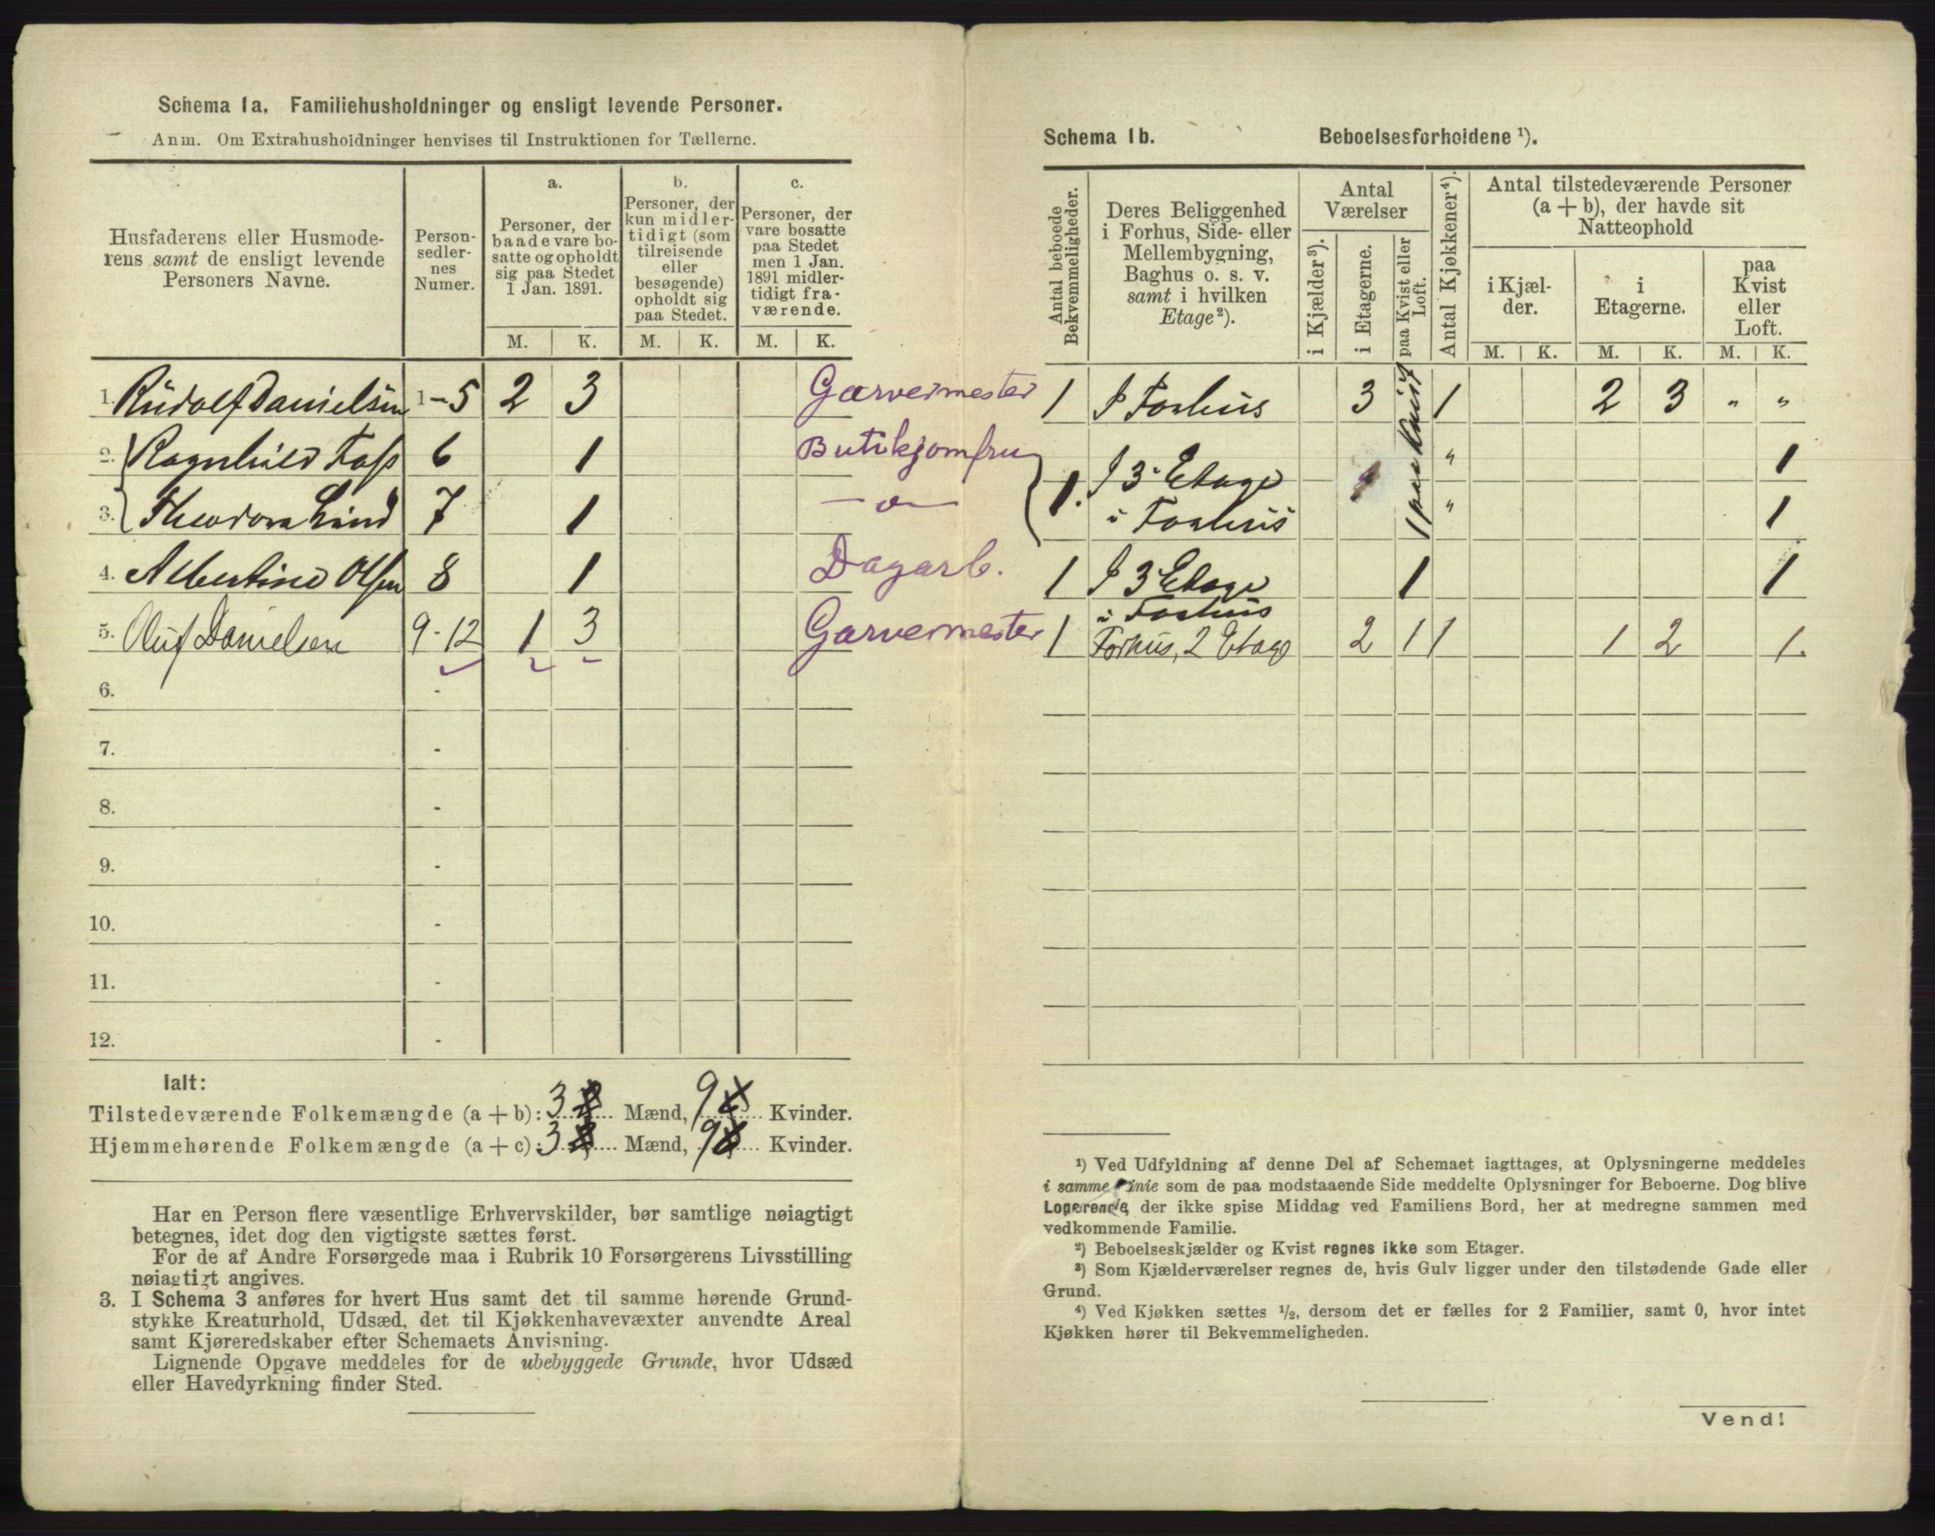 Schema 1a. Familiehusholdninger og ensligt levende Personer.
Anm. Om Extrahusholdninger henvises til Instruktionen for Tællerne.
Husfaderens eller Husmode-
rens samt de ensligt levende
Personers Navne.
Person-
sedler-
nes
Numer.
a.
Personer, der
baade vare bo-
satte og opholdt
sig paa Stedet
1 Jan. 1891.
b.
Personer, der
kun midler-
tidigt (som
tilreisende
eller
besøgende)
opholdt sig
paa Stedet.
c.
Personer, der
vare bosatte
paa Stedet
men 1 Jan.
1891 midler-
tidigt fra-
værende.
M. K. M. K. M. K.
1. Rudolf Danielsen 1-5 2 3 Garvermester
2. Ragnhild Foss 6 1 Butikjomfru
3. Theodora Lund 7 1 -o-
4. Albertine Olsen 8 1 Dagarb.
5. Oluf Danielsen 9-12 1 3 Garvermester
6. -
7. -
8. -
9. -
10. -
11. -
12. -
Ialt:
Tilstedeværende Folkemængde (a + b): 3 Mænd, 9 Kvinder.
Hjemmehørende Folkemængde (a + c): 3 Mænd, 9 Kvinder.
Har en Person flere væsentlige Erhvervskilder, bør samtlige nøiagtigt
betegnes, idet dog den vigtigste sættes først.
For de af Andre Forsørgede maa i Rubrik 10 Forsørgerens Livsstilling
nøiagtigt angives.
3. I Schema 3 anføres for hvert Hus samt det til samme hørende Grund-
stykke Kreaturhold, Udsæd, det til Kjøkkenhavevæxter anvendte Areal
samt Kjøreredskaber efter Schemaets Anvisning.
Lignende Opgave meddeles for de ubebyggede Grunde, hvor Udsæd
eller Havedyrkning finder Sted.
Schema 1b. Beboelsesforholdene ¹).
Antal beboede
Bekvemmeligheder.
Deres Beliggenhed
i Forhus, Side- eller
Mellembygning,
Baghus o. s. v.
samt i hvilken
Etage²).
Antal
Værelser
i Kjælder³).
i Etagerne.
paa Kvist eller
Loft.
Antal Kjøkkener⁴).
Antal tilstedeværende Personer
(a + b), der havde sit
Natteophold
i Kjæl-
der.
i
Etagerne.
paa
Kvist
eller
Loft.
M. K. M. K. M. K.
1 I Forhus 3 1 2 3 " "
1. I 3 Etage 1 paa Kvist " 1
i Forhus " 1
1 I 3 Etage 1 1
i Forhus
1 Forhus, 2 Etage 2 1 1 1 2 1.
¹) Ved Udfyldning af denne Del af Schemaet iagttages, at Oplysningerne meddeles
i samme Linie som de paa modstaaende Side meddelte Oplysninger for Beboerne. Dog blive
Logerende, der ikke spise Middag ved Familiens Bord, her at medregne sammen med
vedkommende Familie.
²) Beboelseskjælder og Kvist regnes ikke som Etager.
³) Som Kjælderværelser regnes de, hvis Gulv ligger under den tilstødende Gade eller
Grund.
⁴) Ved Kjøkken sættes ½, dersom det er fælles for 2 Familier, samt 0, hvor intet
Kjøkken hører til Bekvemmeligheden.
Vend!